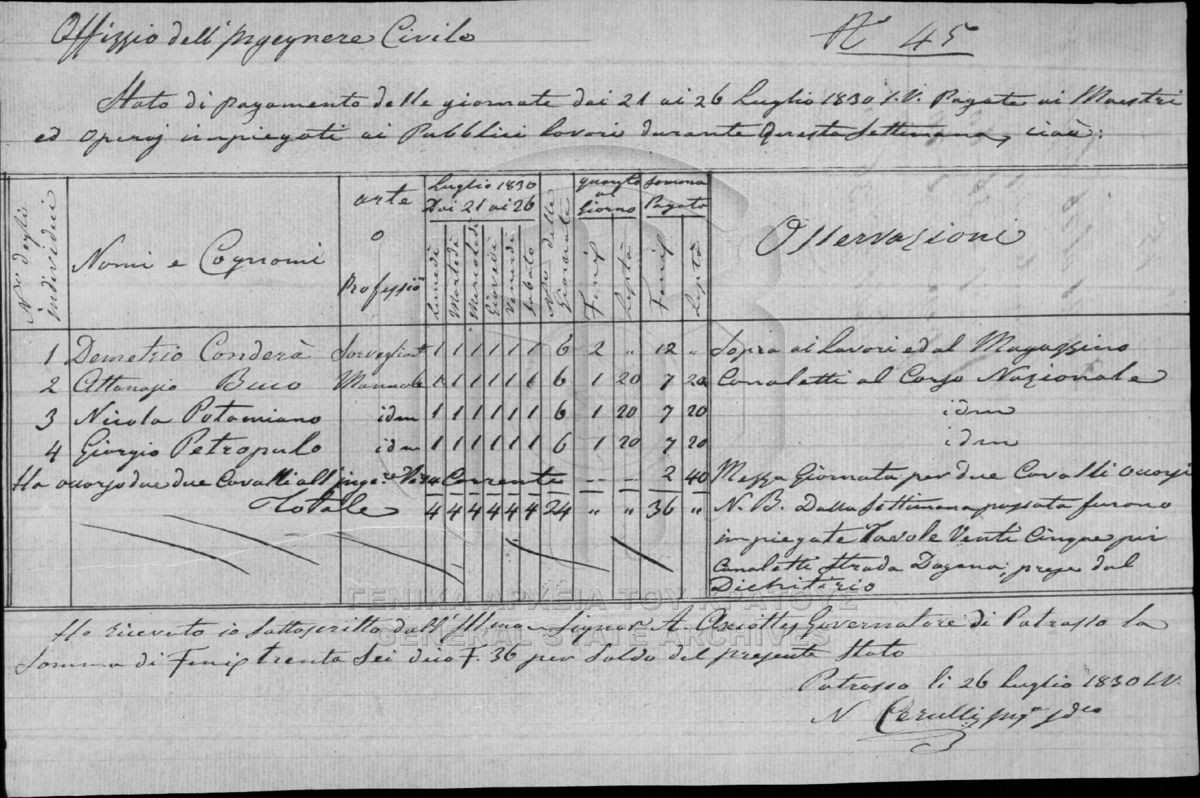 Offizio dell'Ingegnere Civile
N° 45
Stato di pagamento delle giornate dai 21 ai 26 Luglio 1830 S.V. Pagate ai Maestri
ed operaj impiegati ai Pubblici Lavori durante questa Settimana, cioè:
N.° degli individui
Nomi e Cognomi
arte o Professio
Luglio 1830
Dai 21 ai 26
Lunedì Martedì Mercoledì Giovedì Venerdì Sabato
N.° delle Giornate
quanto al Giorno
Fenis Leptà
Somma Pagata
Fenis Leptà
Osservazioni
1 Demetrio Conderà Sorvegliat 1 1 1 1 1 1 6 2 " 12 " Sopra ai Lavori ed al Magazzino
2 Attanasio Buco Manuale 1 1 1 1 1 1 6 1 20 7 20 Canaletti al Corso Nazionale
3 Nicola Potamiano idm 1 1 1 1 1 1 6 1 20 7 20 idm
4 Giorgio Petropulo idm 1 1 1 1 1 1 6 1 20 7 20 idm
Corrente 2 40 Mezza Giornata per due Cavalli
Totale 4 4 4 4 4 4 24 " " 36 " N.B. Dalla Settimana passata furono
impiegate Tavole Venti Cinque per
Canaletti Strada Dogana, prese dal
Dichiterio
ΓΕΝΙΚΑ ΑΡΧΕΙΑ ΤΟΥ ΚΡΑΤΟΥΣ
GENERAL STATE ARCHIVES
Ho ricevuto io sottoscritto dall'Illmo Signor A. Axiotty Governatore di Patrasso la
Somma di Fenis trenta Sei dico F. 36 per Saldo del presente Stato
Patrasso li 26 Luglio 1830 S.V.
N Cerulli